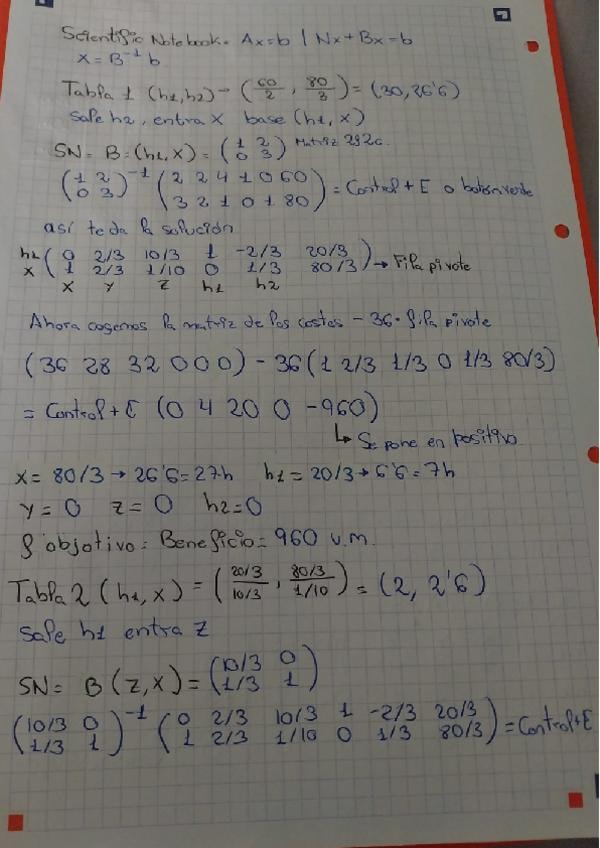 Scientific Notebook. Ax=b | Nx+Bx=b
X = B⁻¹ b
Tabla 1 (h1,h2) - (60/2, 80/3) = (30, 26'6)
Sale h2, entra X base (h1, x)
SN= B=(h1,X) = (1 2 / 0 3) Matriz 2x2c.
(1 2 / 0 3)⁻¹ (2 2 4 1 0 60 / 3 2 1 0 1 80) = Control + E o botón verde
así te da la solución
h1 (0 2/3 10/3 1 -2/3 20/3
x 1 2/3 1/10 0 1/3 80/3) → Fila pivote
x y z h1 h2
Ahora cogemos la matriz de los costes - 36 · fila pivote
(36 28 32 0 0 0) - 36 (1 2/3 1/3 0 1/3 80/3)
= Control + E (0 4 20 0 -960)
↳ Se pone en positivo
X = 80/3 → 26'6 = 27h h1 = 20/3 → 6'6 = 7h
y = 0 z = 0 h2 = 0
f objetivo = Beneficio = 960 u.m.
Tabla 2 (h1, x) = (20/3 / 10/3, 80/3 / 1/10) = (2, 2'6)
Sale h1 entra z
SN= B(z,x) = (10/3 0 / 1/3 1)
(10/3 0 / 1/3 1)⁻¹ (0 2/3 10/3 1 -2/3 20/3 / 1 2/3 1/10 0 1/3 80/3) = Control+E